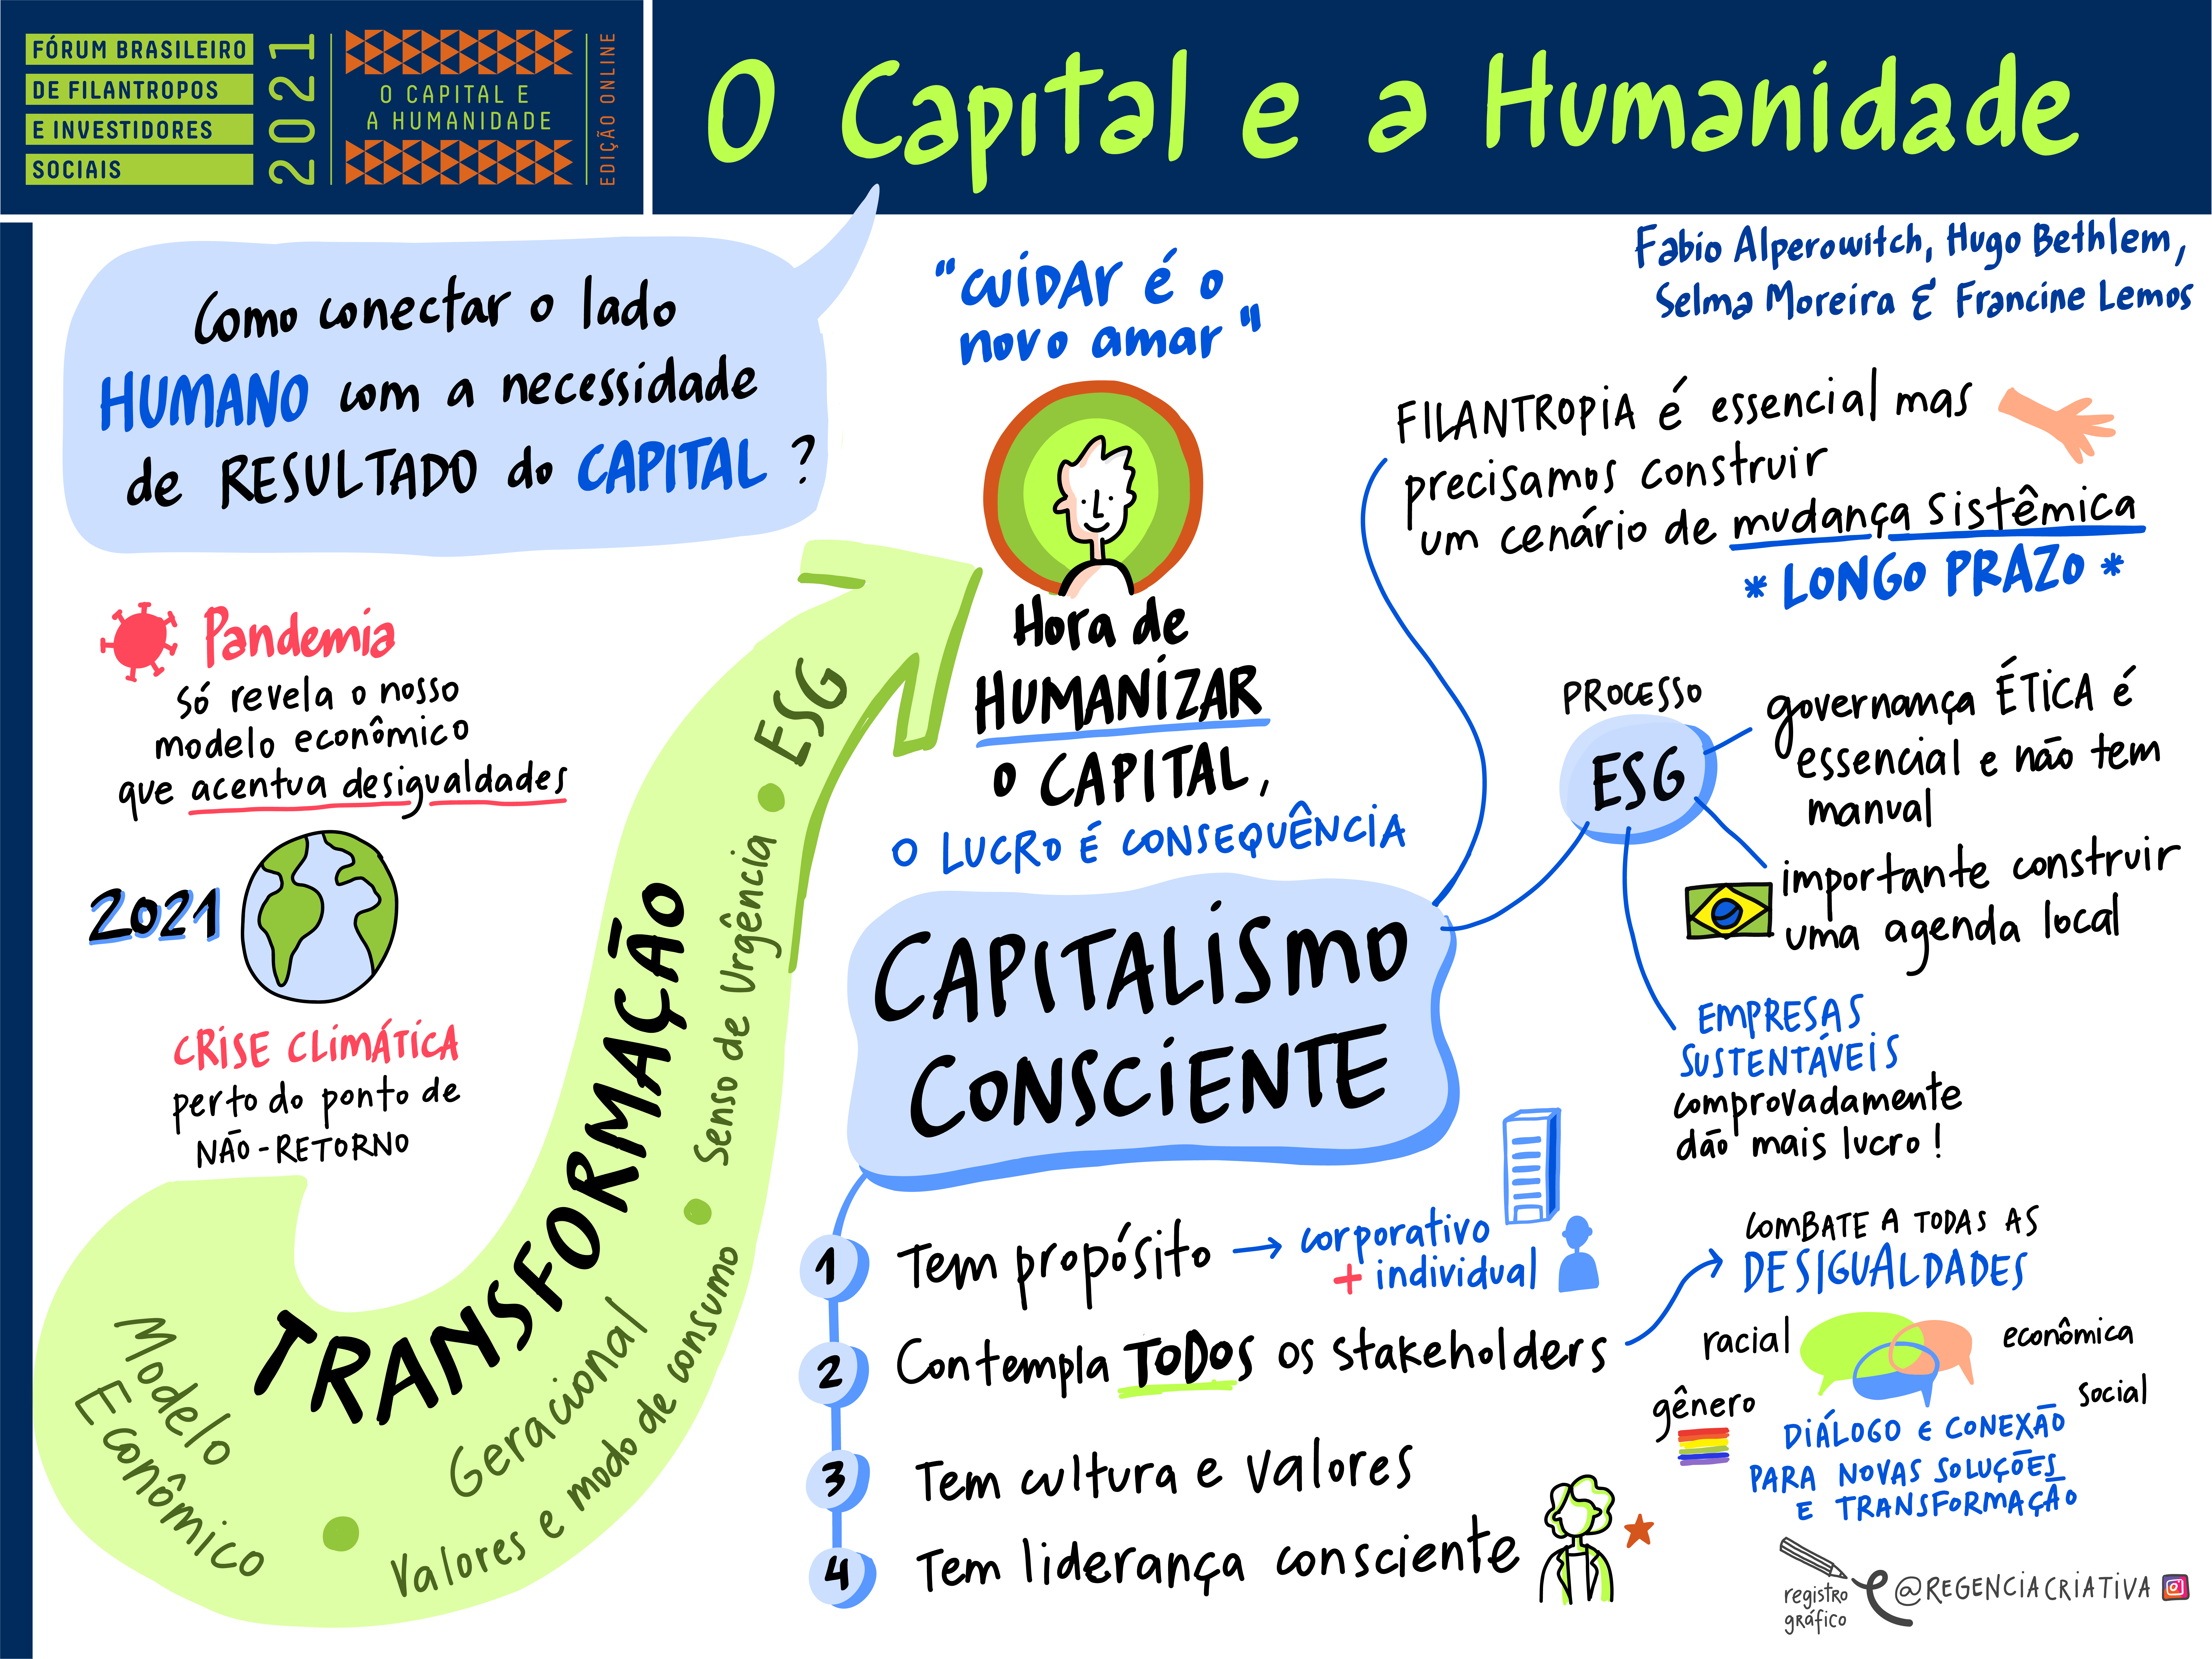 FÓRUM BRASILEIRO
DE FILANTROPOS
E INVESTIDORES
SOCIAIS
2021
O CAPITAL E
A HUMANIDADE
EDIÇÃO ONLINE
O Capital e a Humanidade
Fabio Alperowitch, Hugo Bethlem,
Selma Moreira & Francine Lemos
Como conectar o lado
HUMANO com a necessidade
de RESULTADO do CAPITAL ?
"CUIDAR é o
novo amar"
Hora de
HUMANIZAR
O CAPITAL,
O LUCRO É CONSEQUÊNCIA
FILANTROPIA é essencial mas
precisamos construir
um cenário de mudança sistêmica
* LONGO PRAZO *
Pandemia
só revela o nosso
modelo econômico
que acentua desigualdades
2021
CRISE CLIMÁTICA
perto do ponto de
NÃO-RETORNO
TRANSFORMAÇÃO
Modelo
Econômico
Geracional
Valores e modo de consumo • Senso de Urgência • ESG
CAPITALISMO
CONSCIENTE
PROCESSO
ESG
governança ÉTICA é
essencial e não tem
manual
importante construir
uma agenda local
EMPRESAS
SUSTENTÁVEIS
comprovadamente
dão mais lucro !
1 Tem propósito → corporativo
+ individual
2 Contempla TODOS os stakeholders
3 Tem cultura e valores
4 Tem liderança consciente
COMBATE A TODAS AS
DESIGUALDADES
racial
econômica
gênero
social
DIÁLOGO E CONEXÃO
PARA NOVAS SOLUÇÕES
E TRANSFORMAÇÃO
registro
gráfico
@REGENCIACRIATIVA